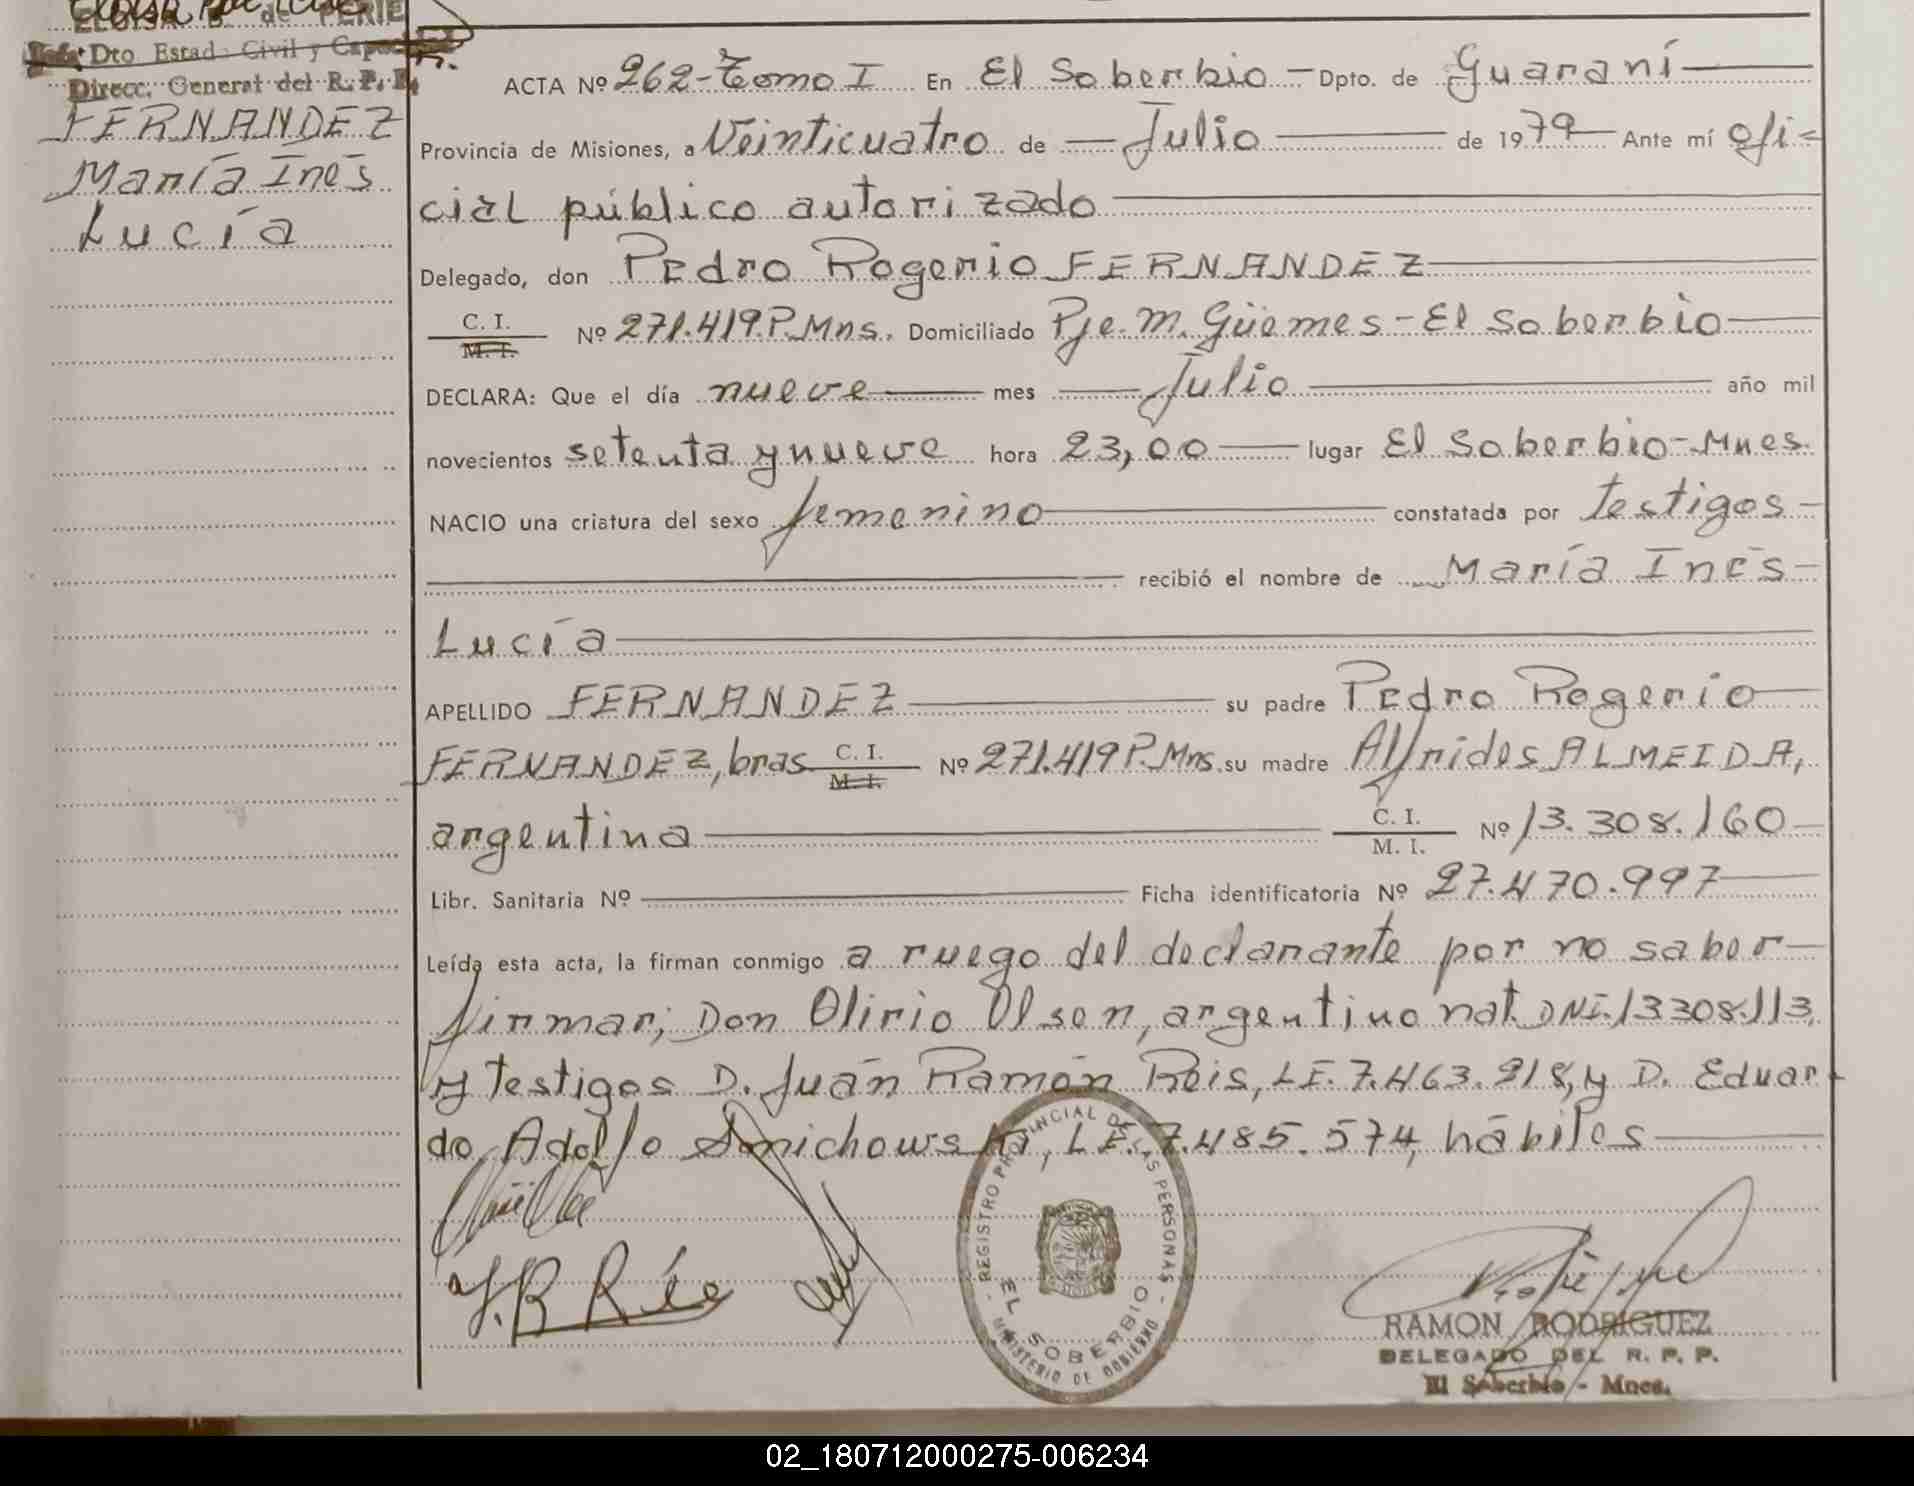 ELOISA B. de PERIE
Dto Estad. Civil y Capac
Direcc. General del R. P. P.
FERNANDEZ
María Inés
Lucía
ACTA Nº 262-Tomo I En El Soberbio - Dpto. de Guaraní
Provincia de Misiones, a Veinticuatro de Julio de 1979 Ante mí ofi-
cial público autorizado
Delegado, don Pedro Rogerio FERNANDEZ
C. I. / M. I. Nº 271.419.P.Mns. Domiciliado Pje. M. Güemes - El Soberbio
DECLARA: Que el día nueve mes Julio año mil
novecientos setenta y nueve hora 23,00 lugar El Soberbio - Mnes.
NACIO una criatura del sexo femenino constatada por testigos
recibió el nombre de María Inés
Lucía
APELLIDO FERNANDEZ su padre Pedro Rogerio
FERNANDEZ, bras C. I. / M. I. Nº 271.419 P.Mns. su madre Alfrides ALMEIDA,
argentina C. I. / M. I. Nº 13.308.160
Libr. Sanitaria Nº Ficha identificatoria Nº 27.470.997
Leída esta acta, la firman conmigo a ruego del declarante por no saber
firmar; Don Olirio Olsen, argentino nat. DNI. 13308.113,
y testigos D. Juán Ramón Reis, LE. 7.463.918, y D. Eduar
do Adolfo Smichowski, LE. 7.485.574, hábiles
J. R Réis
REGISTRO PROVINCIAL DE LAS PERSONAS
EL SOBERBIO
MINISTERIO DE GOBIERNO
RAMON RODRIGUEZ
DELEGADO DEL R. P. P.
El Soberbio - Mnes.
02_180712000275-006234